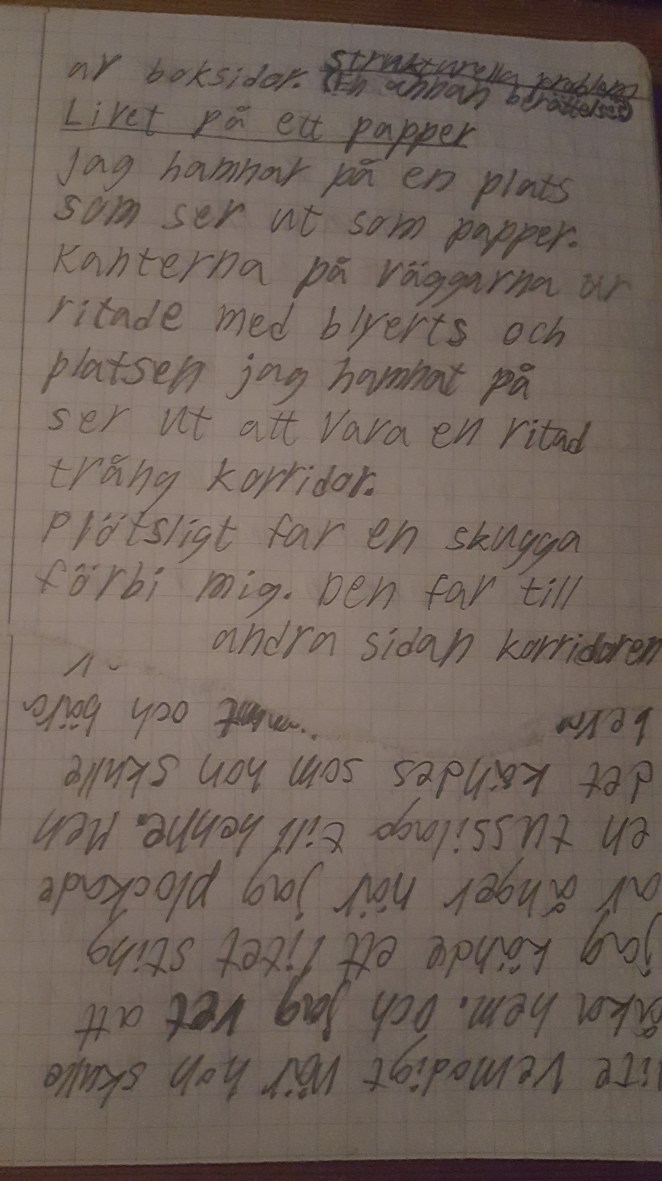 av boksidor. strukturella problem
(En annan berättelse)
Livet på ett papper
Jag hamnar på en plats
som ser ut som papper.
Kanterna på väggarna är
ritade med blyerts och
platsen jag hamnat på
ser ut att vara en ritad
trång korridor.
Plötsligt far en skugga
förbi mig. Den far till
andra sidan korridoren
lite vemodigt när hon skulle
åka hem. Och jag vet att
jag kände ett litet sting
av ånger när jag plockade
en tussilago till henne. Men
det kändes som hon skulle
och bära